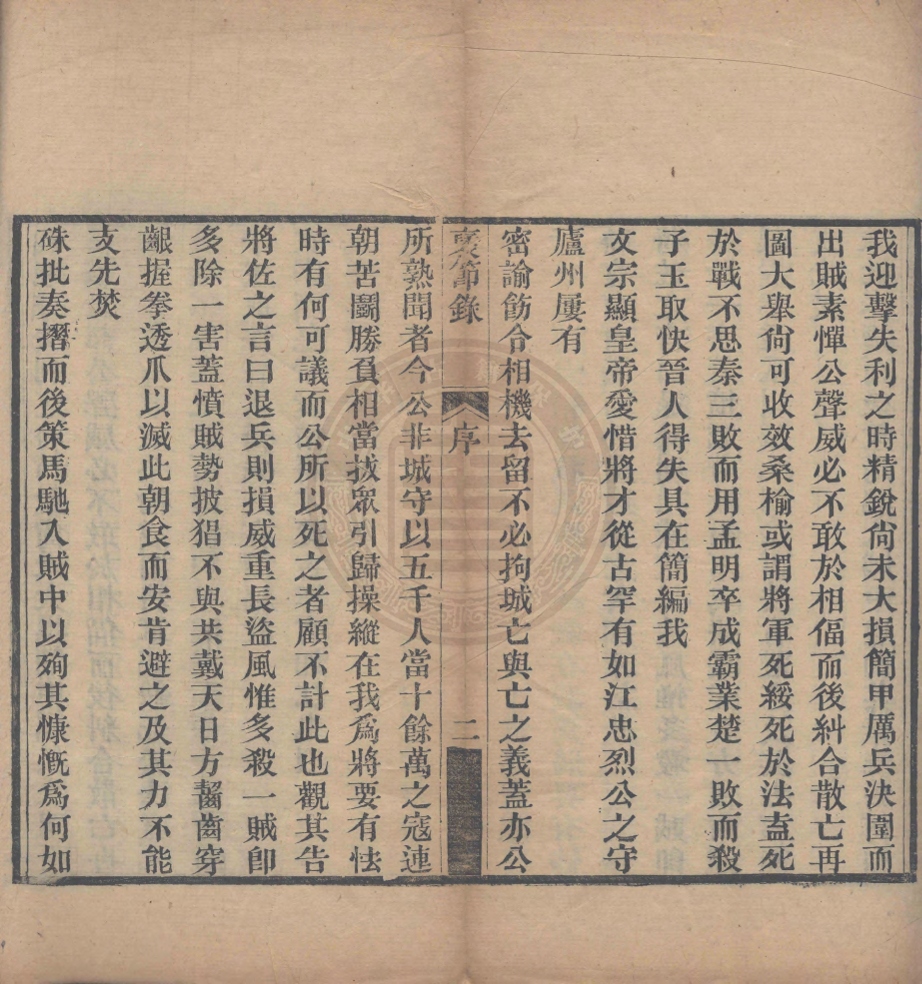 我迎擊失利之時精銳尙未大損簡甲厲兵決圍而
出賊素憚公聲威必不敢於相偪而後糾合散亡再
圖大舉尙可收效桑榆或謂將軍死綏死於法盍死
於戰不思秦三敗而用孟明卒成霸業楚一敗而殺
子玉取快晉人得失具在簡編我
文宗顯皇帝愛惜將才從古罕有如江忠烈公之守
廬州屢有
密諭飭令相機去留不必拘城亡與亡之義蓋亦公
褒節錄
序
二
所熟聞者今公非城守以五千人當十餘萬之寇連
朝苦鬭勝負相當拔眾引歸操縱在我爲將要有怯
時有何可議而公所以死之者顧不計此也觀其告
將佐之言曰退兵則損威重長盜風惟多殺一賊卽
多除一害蓋憤賊勢披猖不與共戴天日方齧齒穿
齦握拳透爪以滅此朝食而安肯避之及其力不能
支先焚
硃批奏摺而後策馬馳入賊中以殉其慷慨爲何如